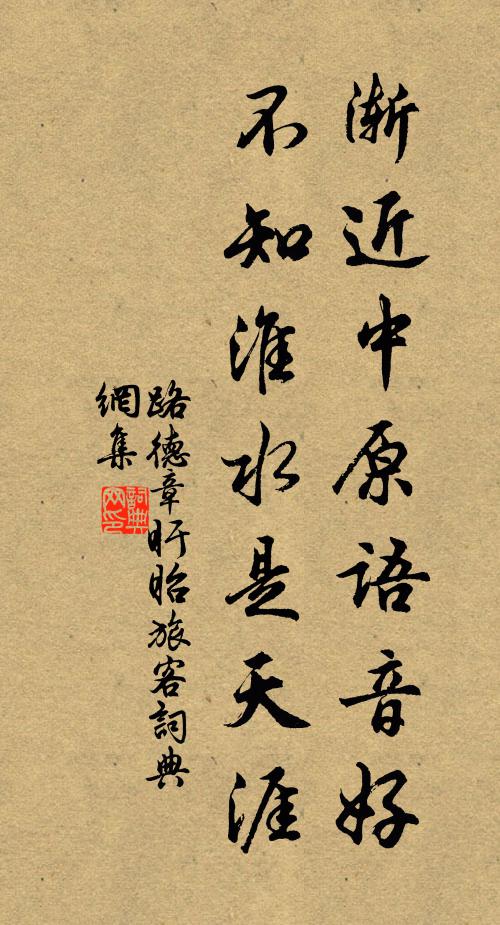 漸近中原語音好
不知淮水是天涯
路德章盱眙旅客詞典
網集
詞典
网印